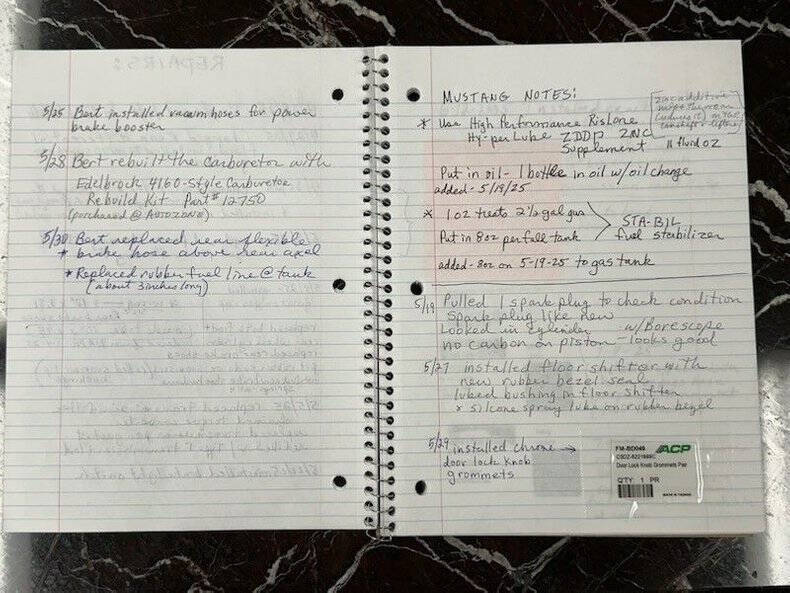 REPAIRS:
5/25 Bert installed vacuum hoses for power
brake booster
5/28 Bert rebuilt the carburetor with
Edelbrock 4160-Style Carburetor
Rebuild Kit Part# 12750
(purchased @ AUTOZONE)
5/30 Bert replaced rear flexible
* brake hose above rear axel
* Replaced rubber fuel line @ tank
(about 3 inches long)
MUSTANG NOTES:
zinc additive
* Use High Performance Rislone
Hy-per Lube ZDDP ZINC
Supplement 11 fluid oz
Put in oil - 1 bottle in oil w/oil change
added - 5/19/25
* 1 oz treats 2½ gal gas
Put in 8oz per full tank
STA-BIL
fuel stabilizer
added - 8oz on 5-19-25 to gas tank
5/19 Pulled 1 spark plug to check condition
Spark plug like new
Looked in cylinder w/Borescope
no carbon on piston - looks good
5/27 installed floor shifter with
new rubber bezel seal
lubed bushing in floor shifter
* silcone spray lube on rubber bezel
5/29 installed chrome →
door lock knob
grommets
FM-BD049
ACP
Door Lock Knob Grommets Pair
QTY 1 PR
MADE IN TAIWAN